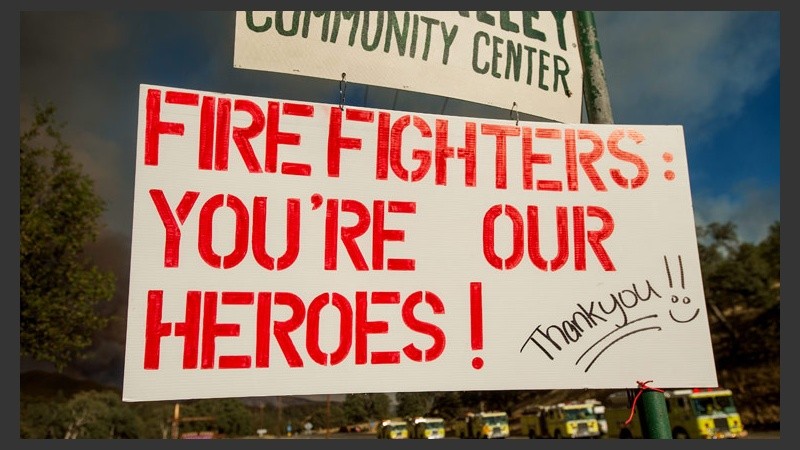 COMMUNITY CENTER
FIRE FIGHTERS:
YOU'RE OUR
HEROES!
Thank you!!